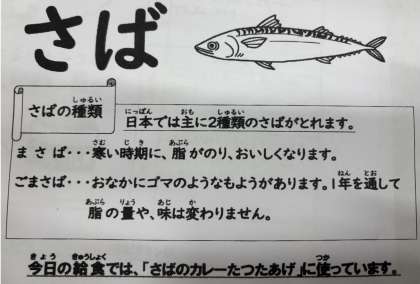 さば
さばの種類
日本では主に2種類のさばがとれます。
まさば・・・寒い時期に、脂がのり、おいしくなります。
ごまさば・・・おなかにゴマのようなもようがあります。1年を通して
脂の量や、味は変わりません。
今日の給食では、「さばのカレーたつたあげ」に使っています。